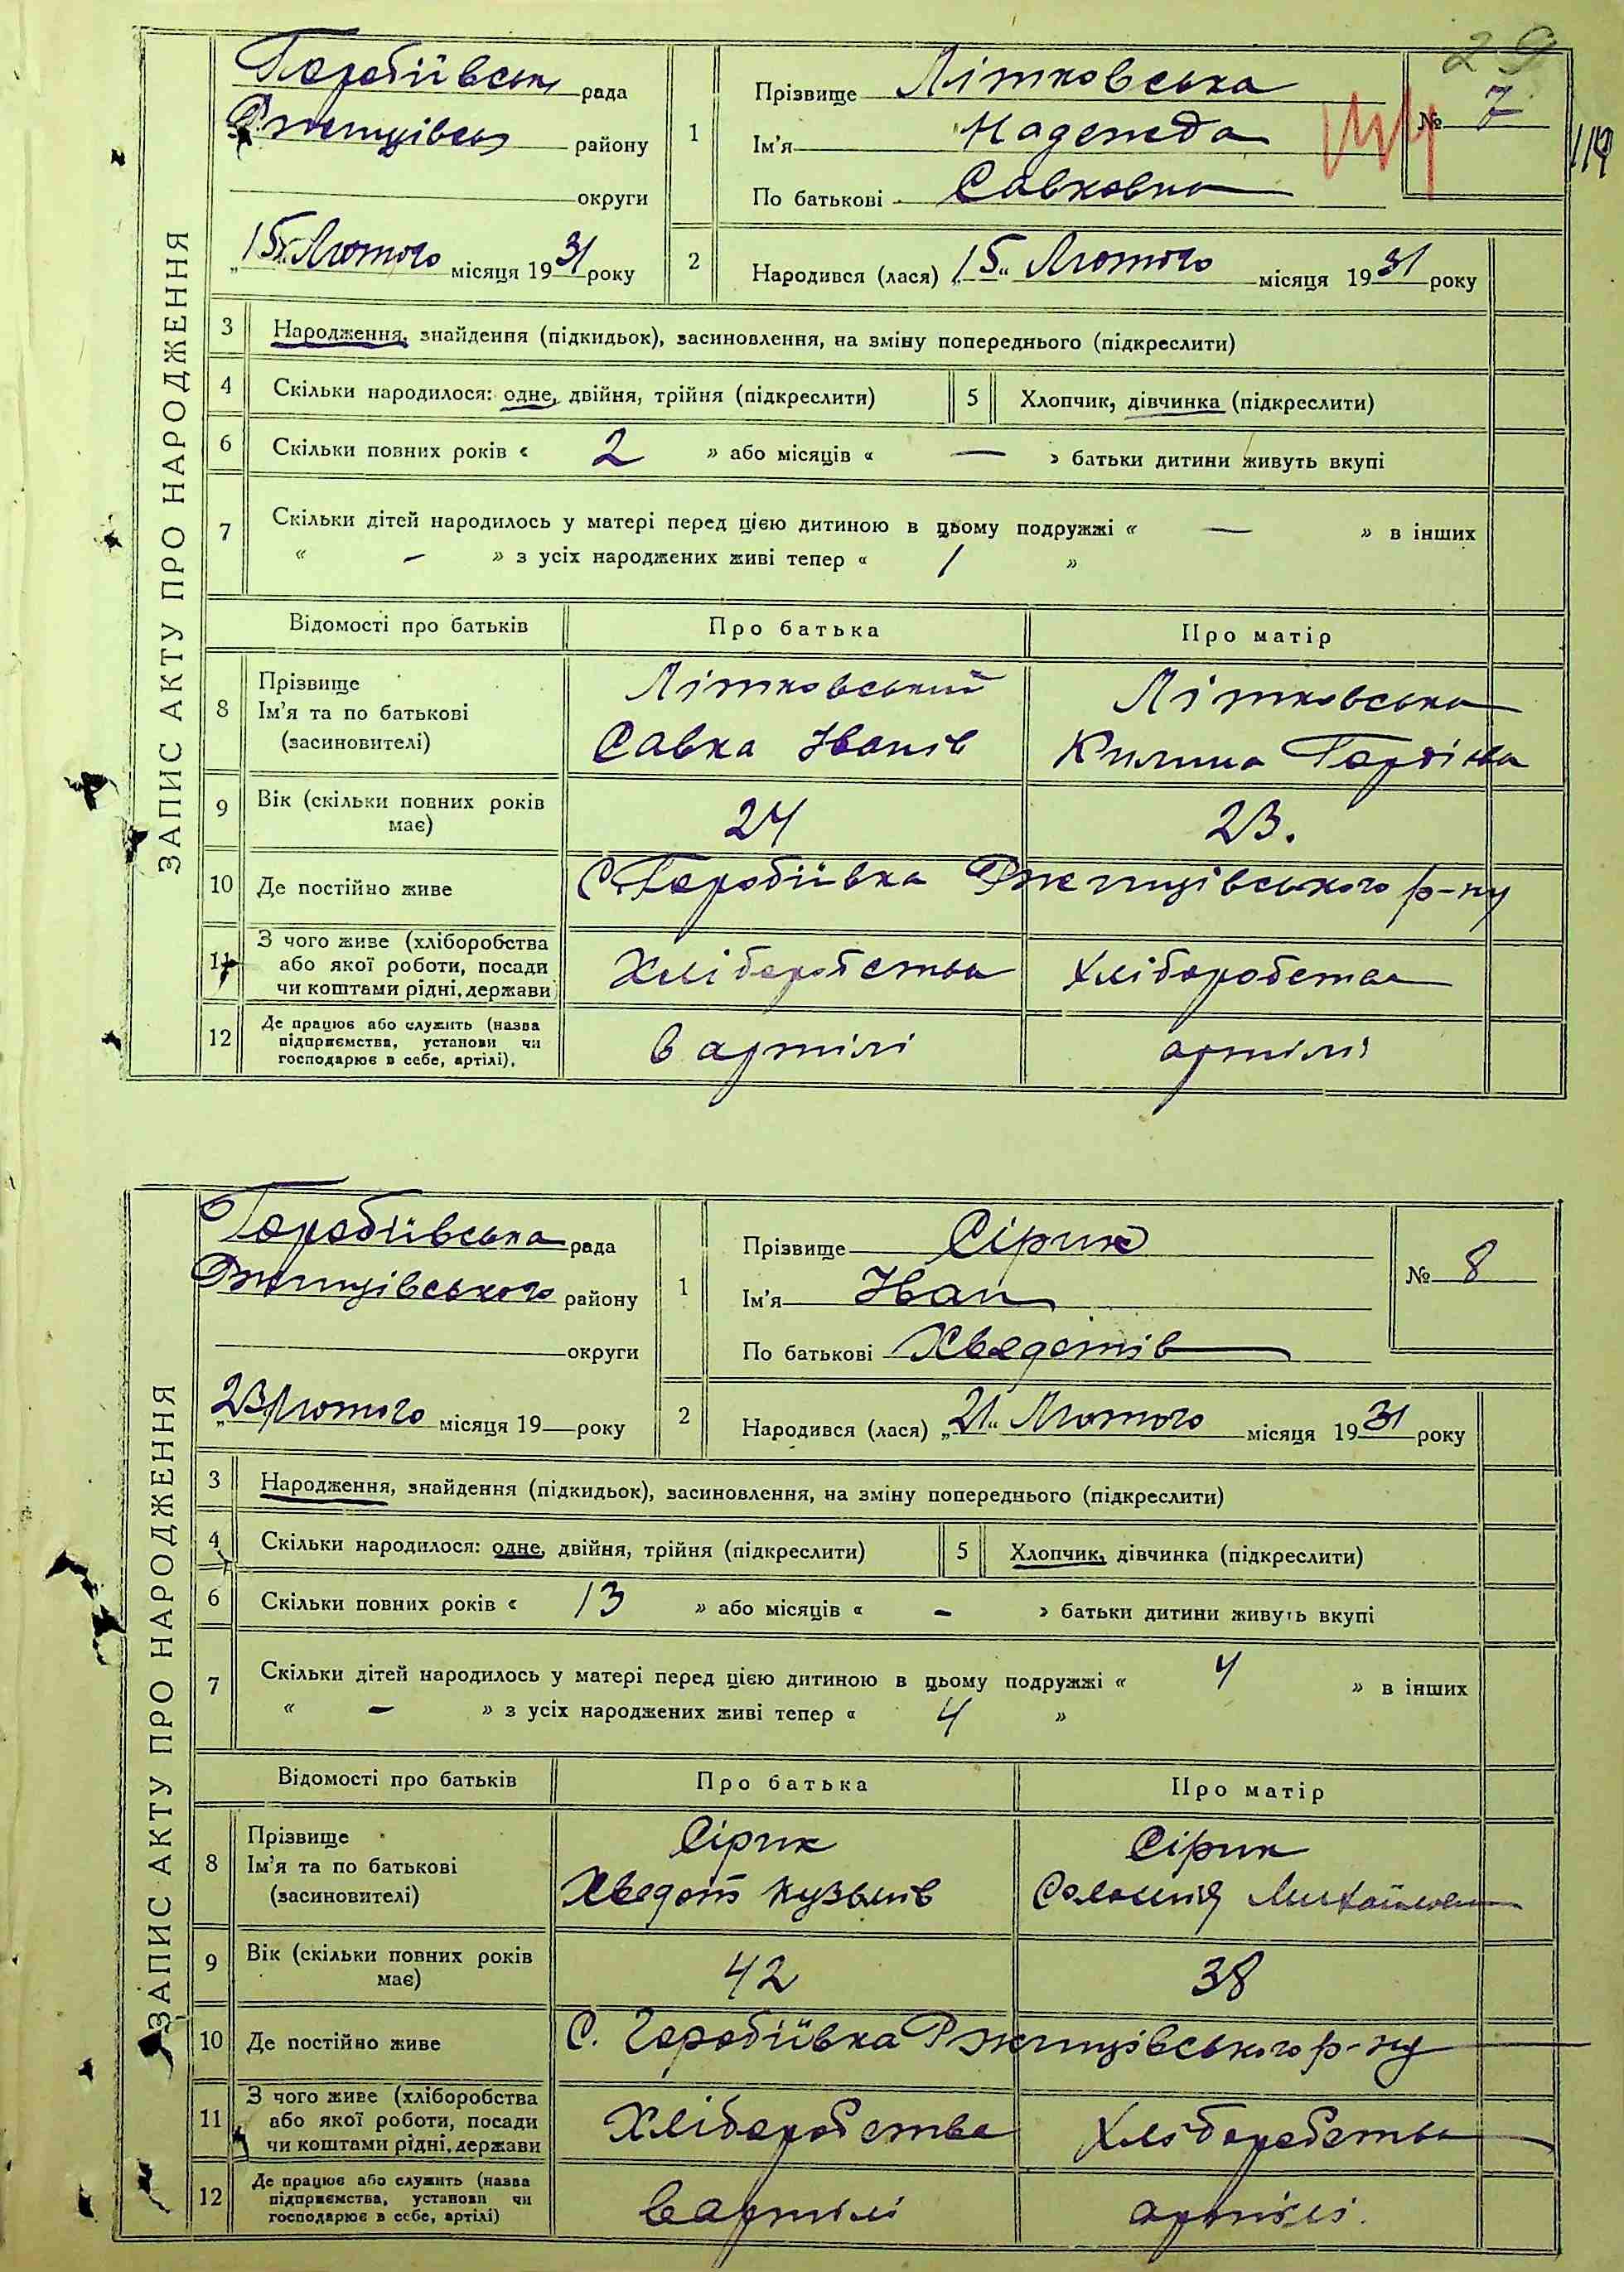 29
119
ЗАПИС АКТУ ПРО НАРОДЖЕННЯ
Горобіївська рада
Ржищівськ району
округи
„15“ Лютого місяця 1931 року
1
Прізвище Літковська
Ім'я Надежда
По батькові Савковна
№ 7
2
Народився (лася) „15“ Лютого місяця 1931 року
3 Народження, знайдення (підкидьок), засиновлення, на зміну попереднього (підкреслити)
4 Скільки народилося: одне, двійня, трійня (підкреслити) 5 Хлопчик, дівчинка (підкреслити)
6 Скільки повних років « 2 » або місяців « — » батьки дитини живуть вкупі
7 Скільки дітей народилось у матері перед цією дитиною в цьому подружжі « — » в інших
« - » з усіх народжених живі тепер « 1 »
Відомості про батьків Про батька Про матір
8 Прізвище Літковський Літковська
Ім'я та по батькові Савка Іванів Килина Гордіївна
(засиновителі)
9 Вік (скільки повних років має) 24 23.
10 Де постійно живе С. Горобіївка Ржищівського р-ну
11 З чого живе (хліборобства або якої роботи, посади чи коштами рідні, держави) Хліборобства Хліборобства
12 Де працює або служить (назва підприємства, установи чи господарює в себе, артілі). в артілі артілі
ЗАПИС АКТУ ПРО НАРОДЖЕННЯ
Горобіївська рада
Ржищівського району
округи
„23“ Лютого місяця 19— року
1
Прізвище Сірик
Ім'я Іван
По батькові Хведотів
№ 8
2
Народився (лася) „21“ Лютого місяця 1931 року
3 Народження, знайдення (підкидьок), засиновлення, на зміну попереднього (підкреслити)
4 Скільки народилося: одне, двійня, трійня (підкреслити) 5 Хлопчик, дівчинка (підкреслити)
6 Скільки повних років « 13 » або місяців « - » батьки дитини живуть вкупі
7 Скільки дітей народилось у матері перед цією дитиною в цьому подружжі « 4 » в інших
« - » з усіх народжених живі тепер « 4 »
Відомості про батьків Про батька Про матір
8 Прізвище Сірик Сірик
Ім'я та по батькові Хведот Кузьмів Соломія Михайловна
(засиновителі)
9 Вік (скільки повних років має) 42 38
10 Де постійно живе С. Горобіївка Ржищівського р-ну
11 З чого живе (хліборобства або якої роботи, посади чи коштами рідні, держави Хліборобства Хліборобства
12 Де працює або служить (назва підприємства, установи чи господарює в себе, артілі) в артілі артілі.